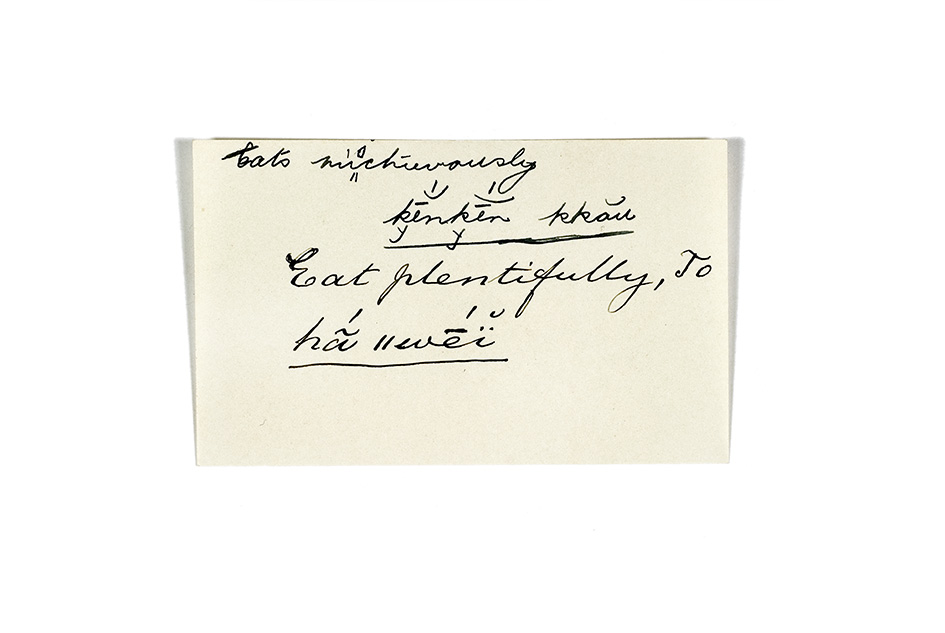 Eats mischievously
kĕ́nkĕ́n kkău
Eat plentifully, To
hã́ ‖wḗĭ̈